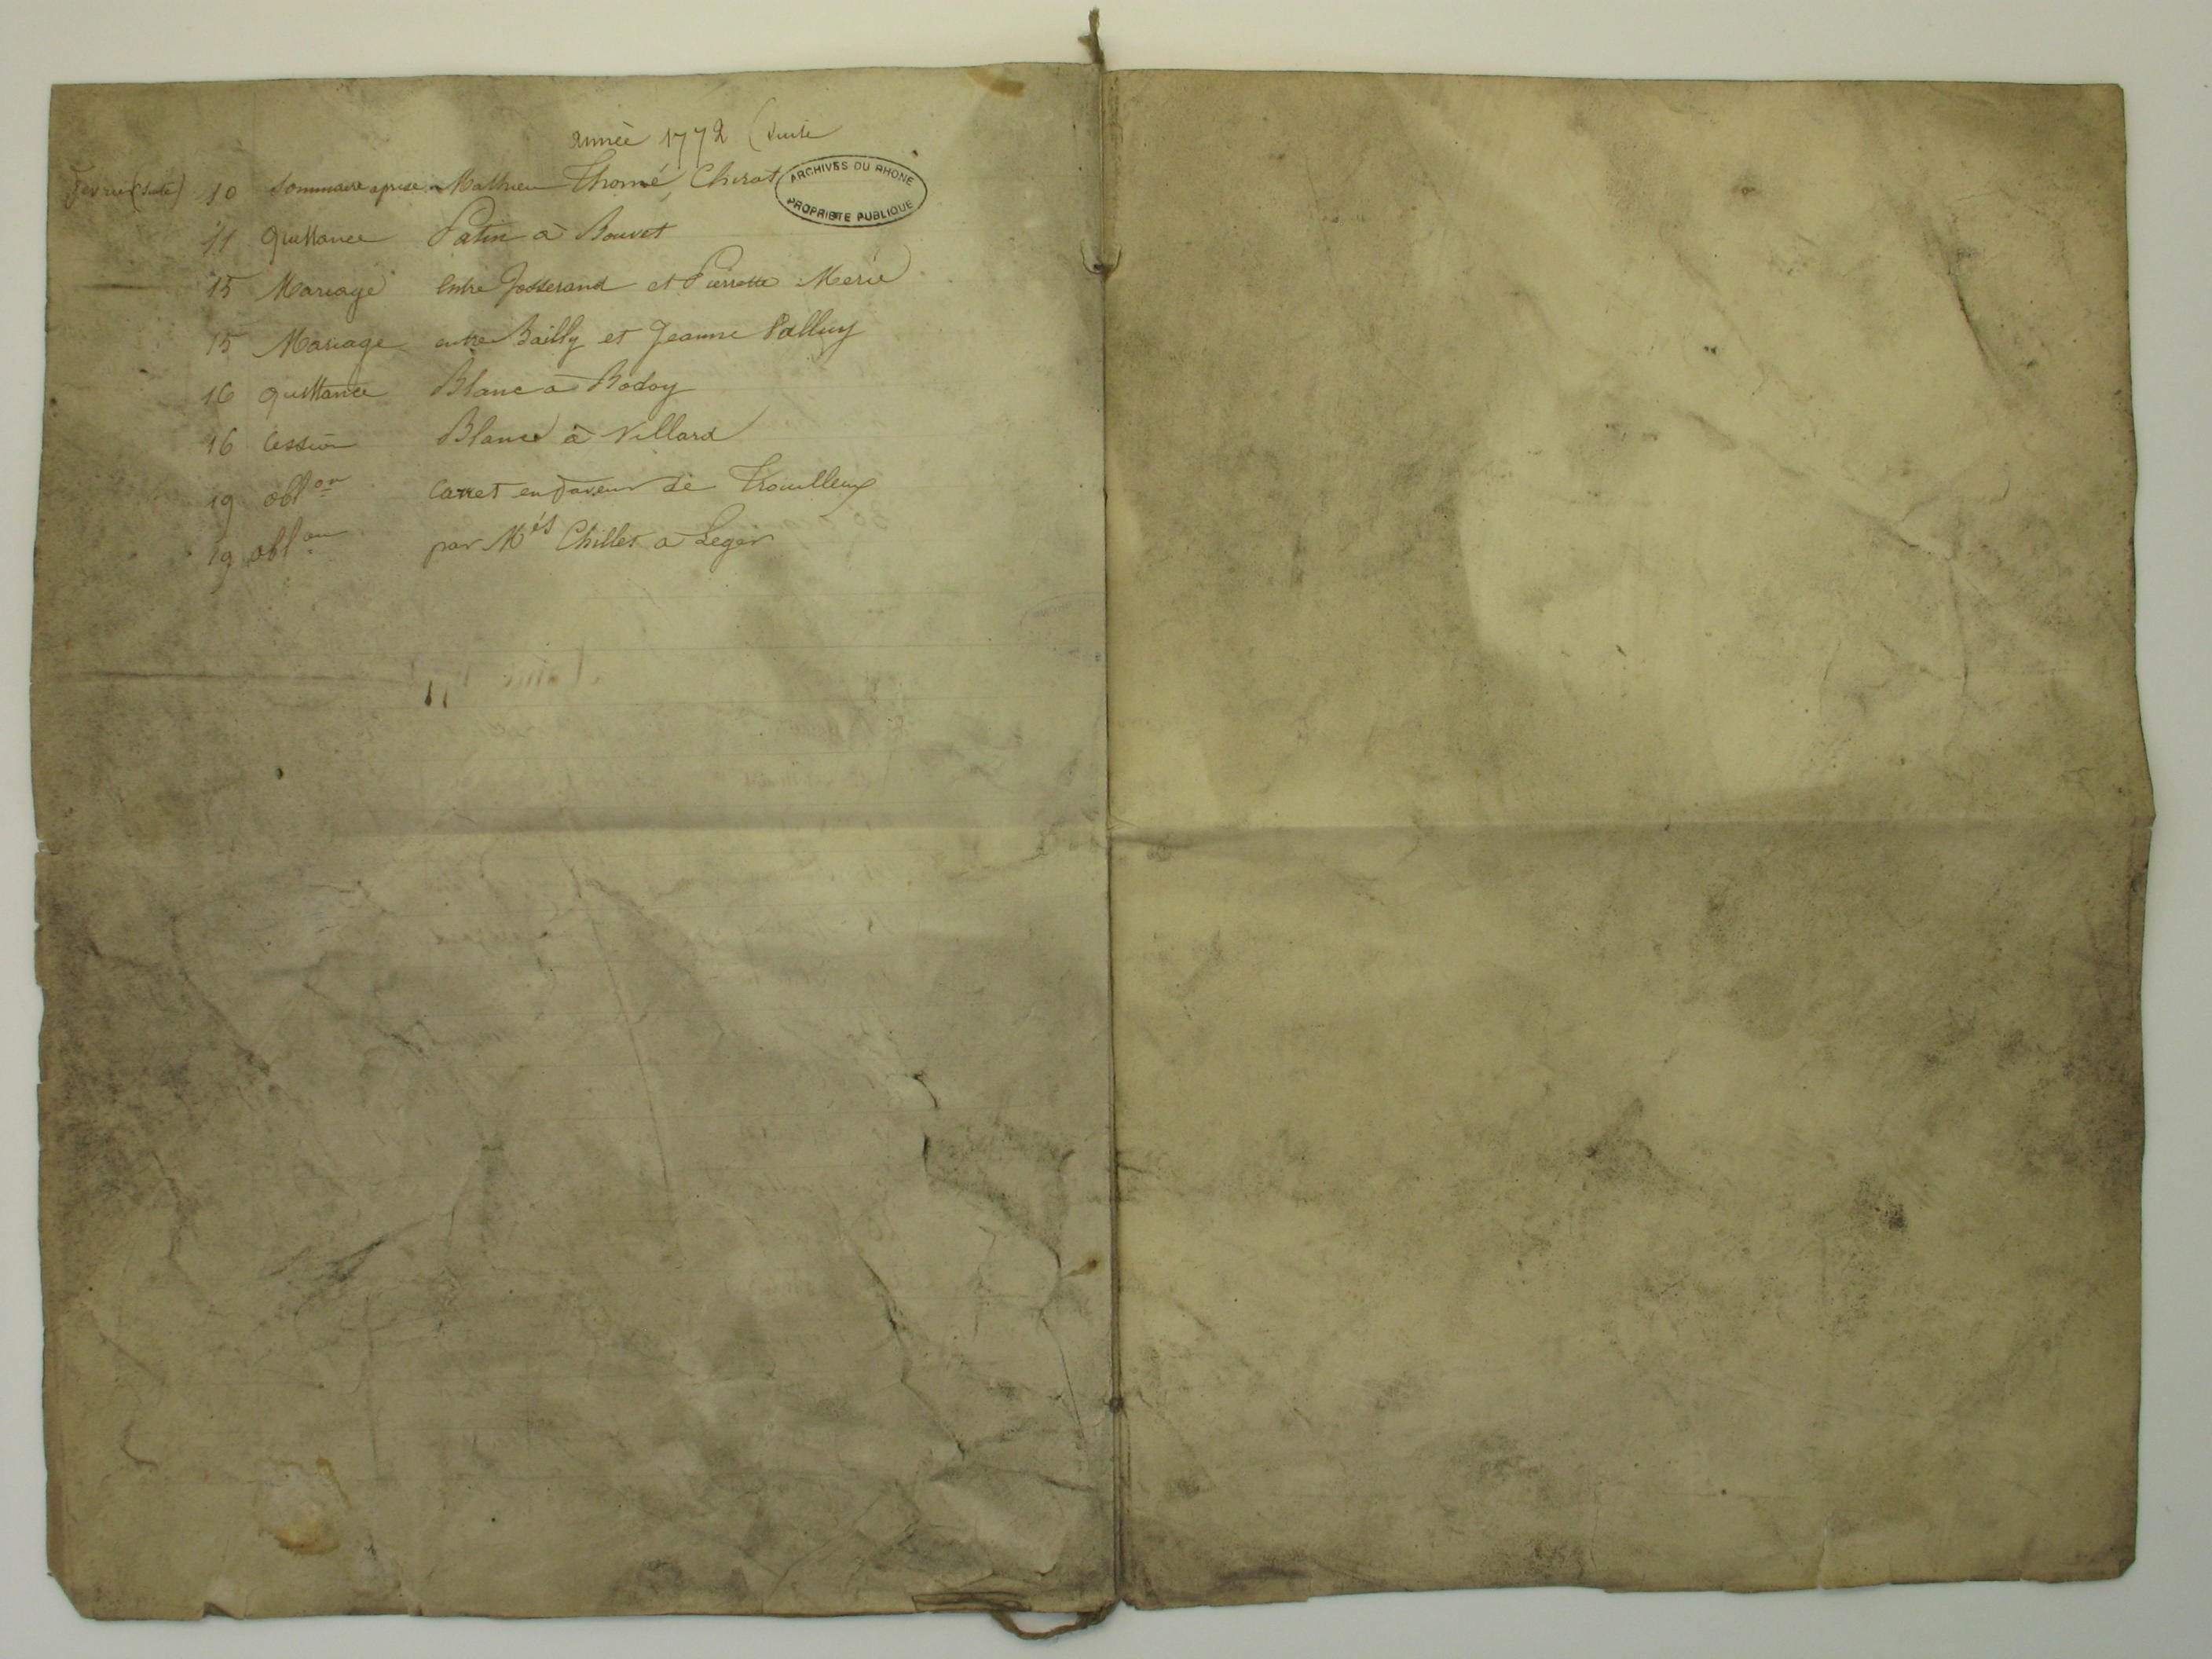 année 1772 (suite
fevrier (suite) 10 Sommaire aprise Mathieu Thomé, Chirat
ARCHIVES DU RHONE
PROPRIETE PUBLIQUE
11 quittance Patin à Bouvet
15 Mariage entre Josserand et Pierrette Merie
15 Mariage entre Bailly et Jeanne Palluy
16 quittance Blanc à Bodoy
16 Cession Blanc à Villard
19 oblon Carret en faveur de Trouilleux
19 oblon par Més Chillet a Leger